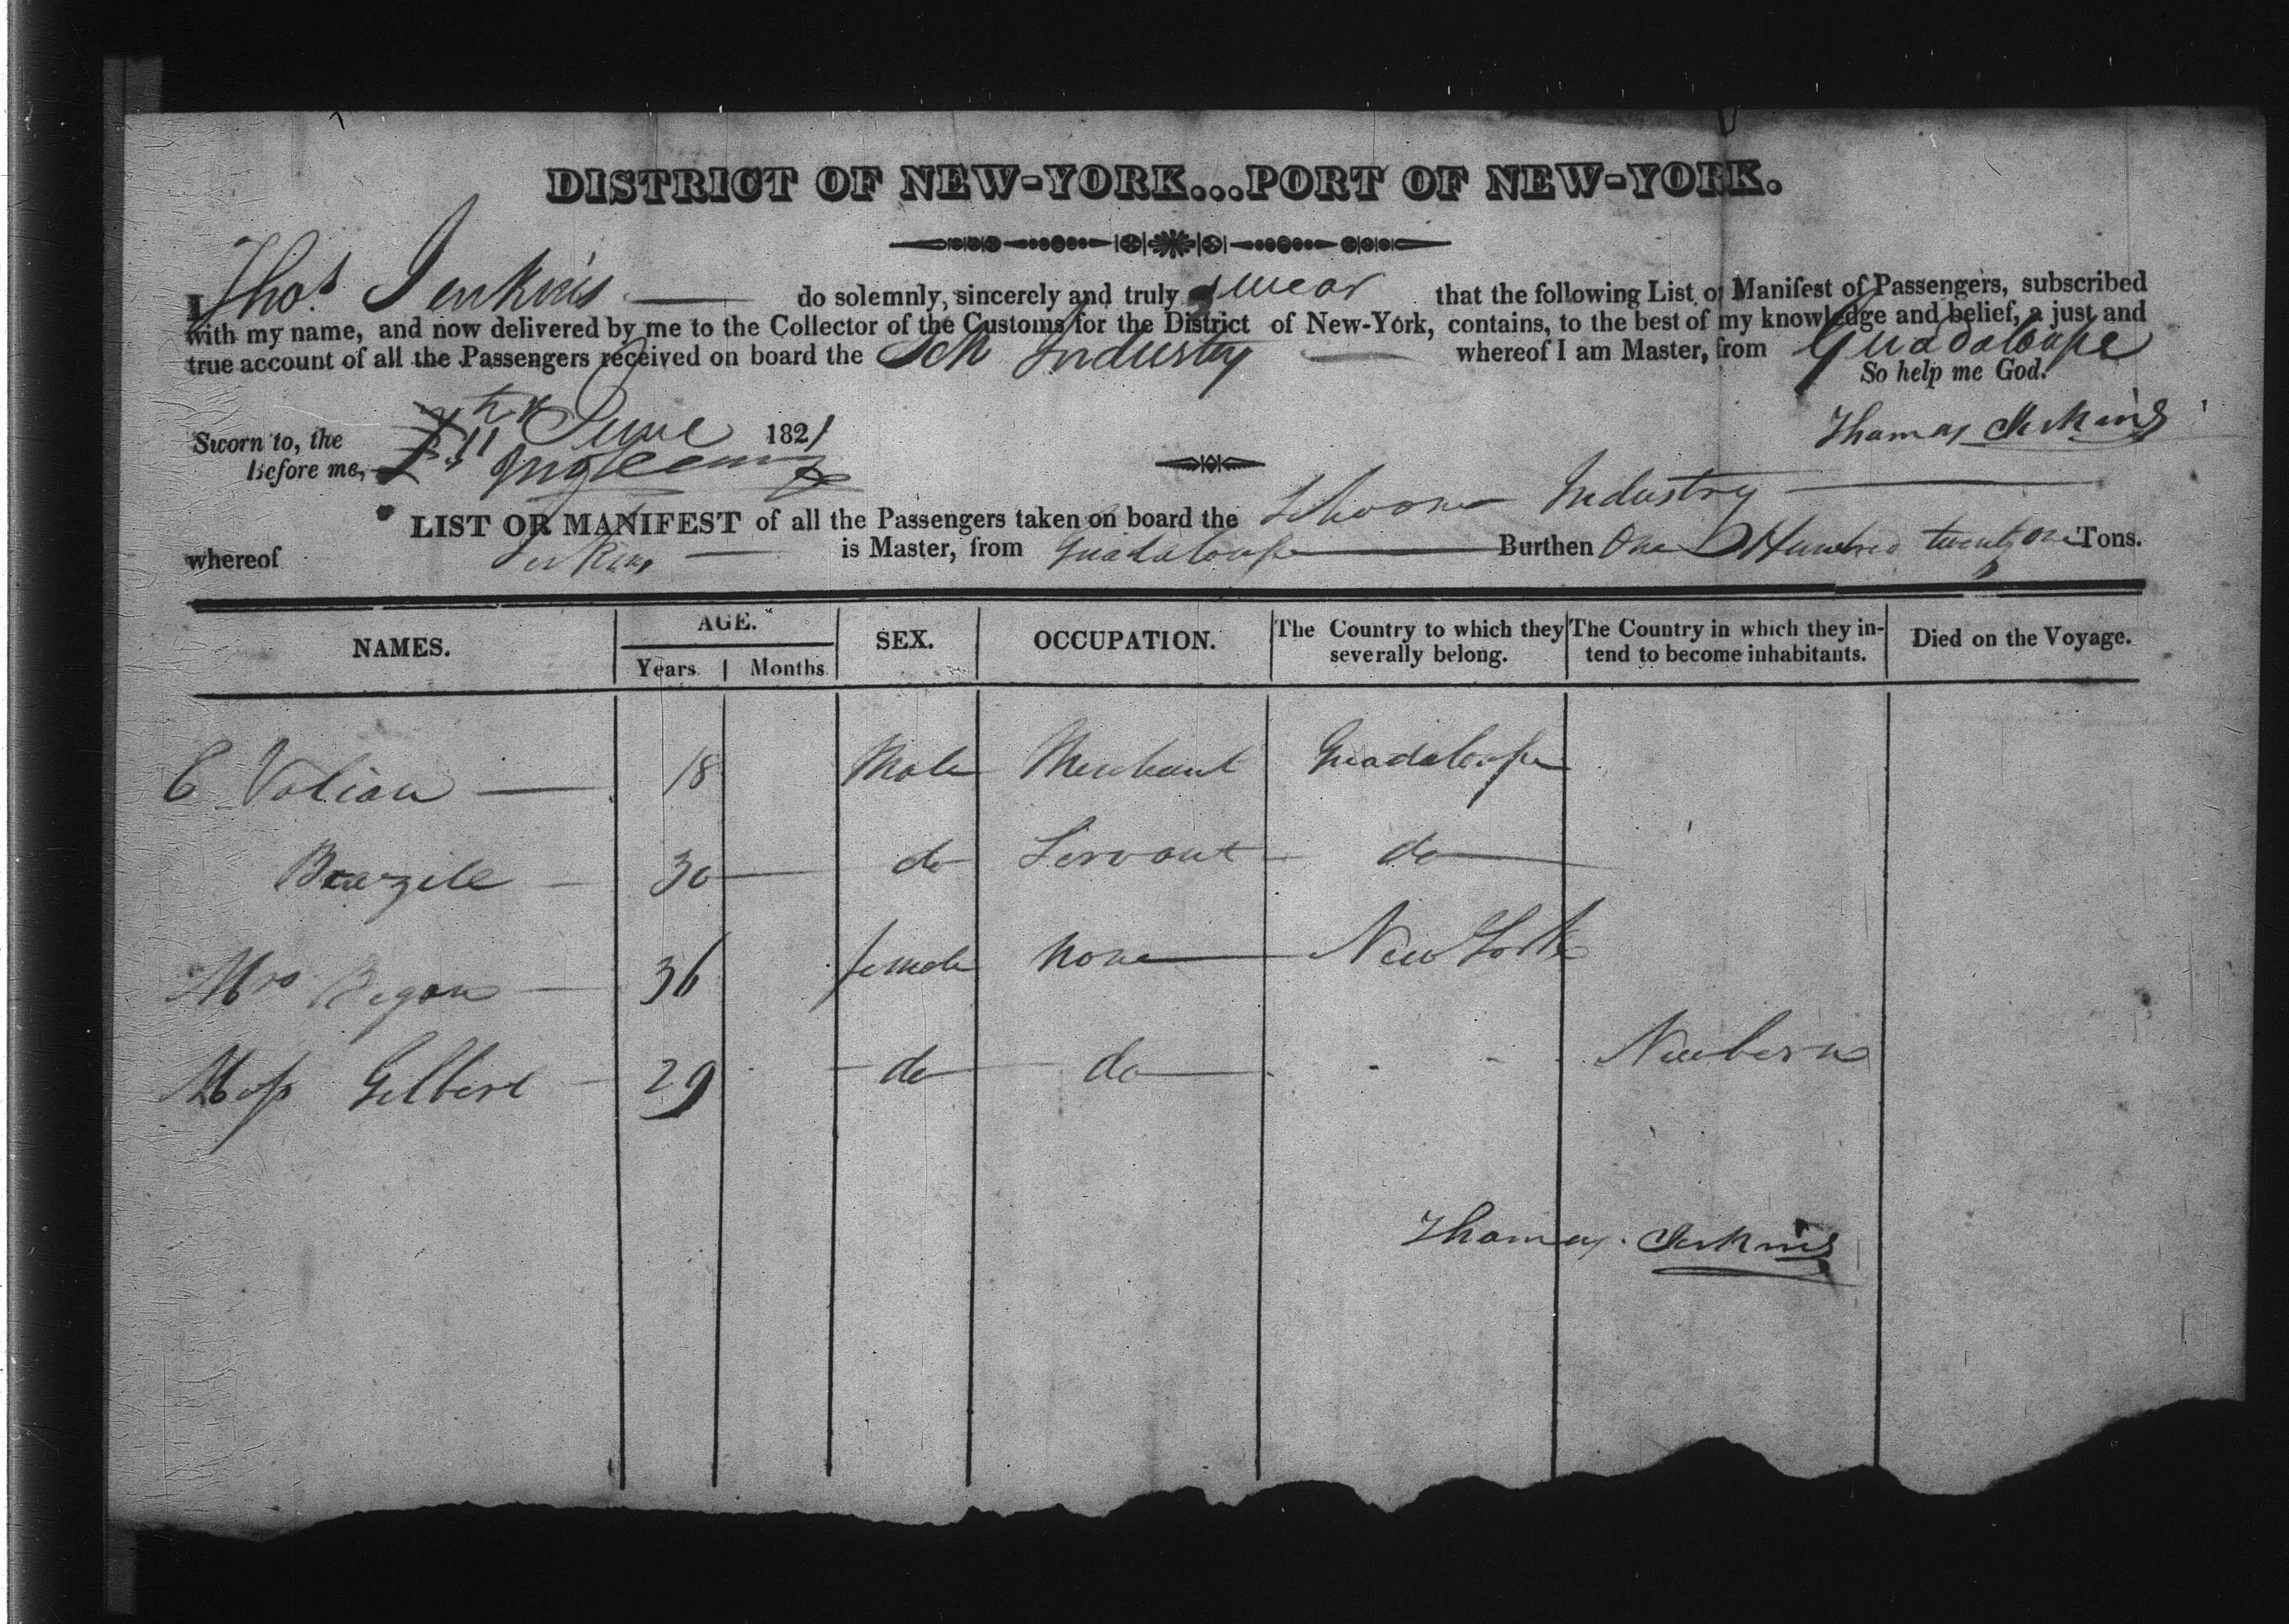 DISTRICT OF NEW-YORK...PORT OF NEW-YORK.
I Thos Jenkins do solemnly, sincerely and truly swear that the following List or Manifest of Passengers, subscribed
with my name, and now delivered by me to the Collector of the Customs for the District of New-York, contains, to the best of my knowledge and belief, a just and
true account of all the Passengers received on board the Sch Industry whereof I am Master, from Guadaloupe
So help me God.
Sworn to, the 11 June 1821
Thomas Jenkins
Before me,
LIST OR MANIFEST of all the Passengers taken on board the Schooner Industry
whereof Jenkins is Master, from Guadaloupe Burthen One Hundred twenty one Tons.
NAMES. AGE. SEX. OCCUPATION. The Country to which they severally belong. The Country in which they intend to become inhabitants. Died on the Voyage.
Years. Months.
C Valiau 18 Male Merchant Guadaloupe
30 do Servant do
Mrs Regan 36 female None New York
Miss Gilbert 29 do do Newbern
Thomas Jenkins